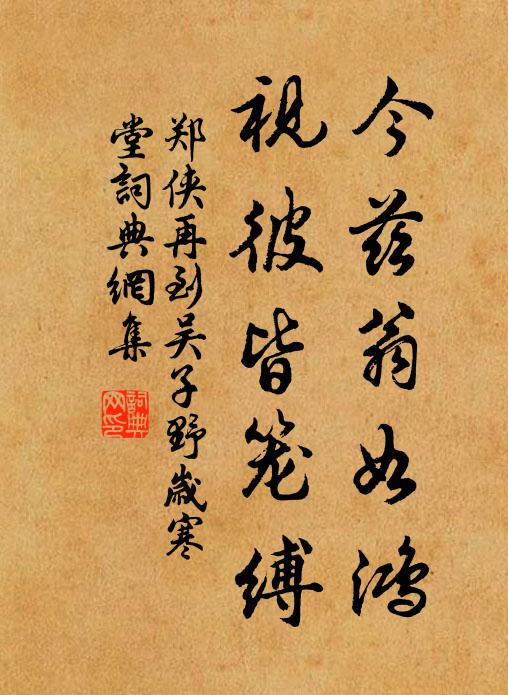 今兹翁如鸿
视彼皆笼缚
郑侠再到吴子野岁寒
堂詞典網集
詞典网印